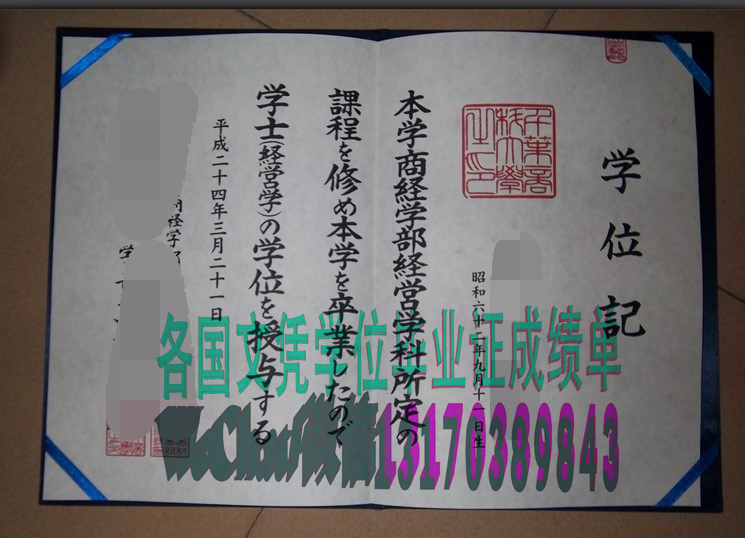 学位記
千葉商科大学之印
昭和六十二年九月十一日生
本学商経学部経営学科所定の
課程を修め本学を卒業したので
学士(経営学)の学位を授与する
平成二十四年三月二十一日
商経学部
学
各国文凭学位毕业证成绩单
WeChat微信13170389843